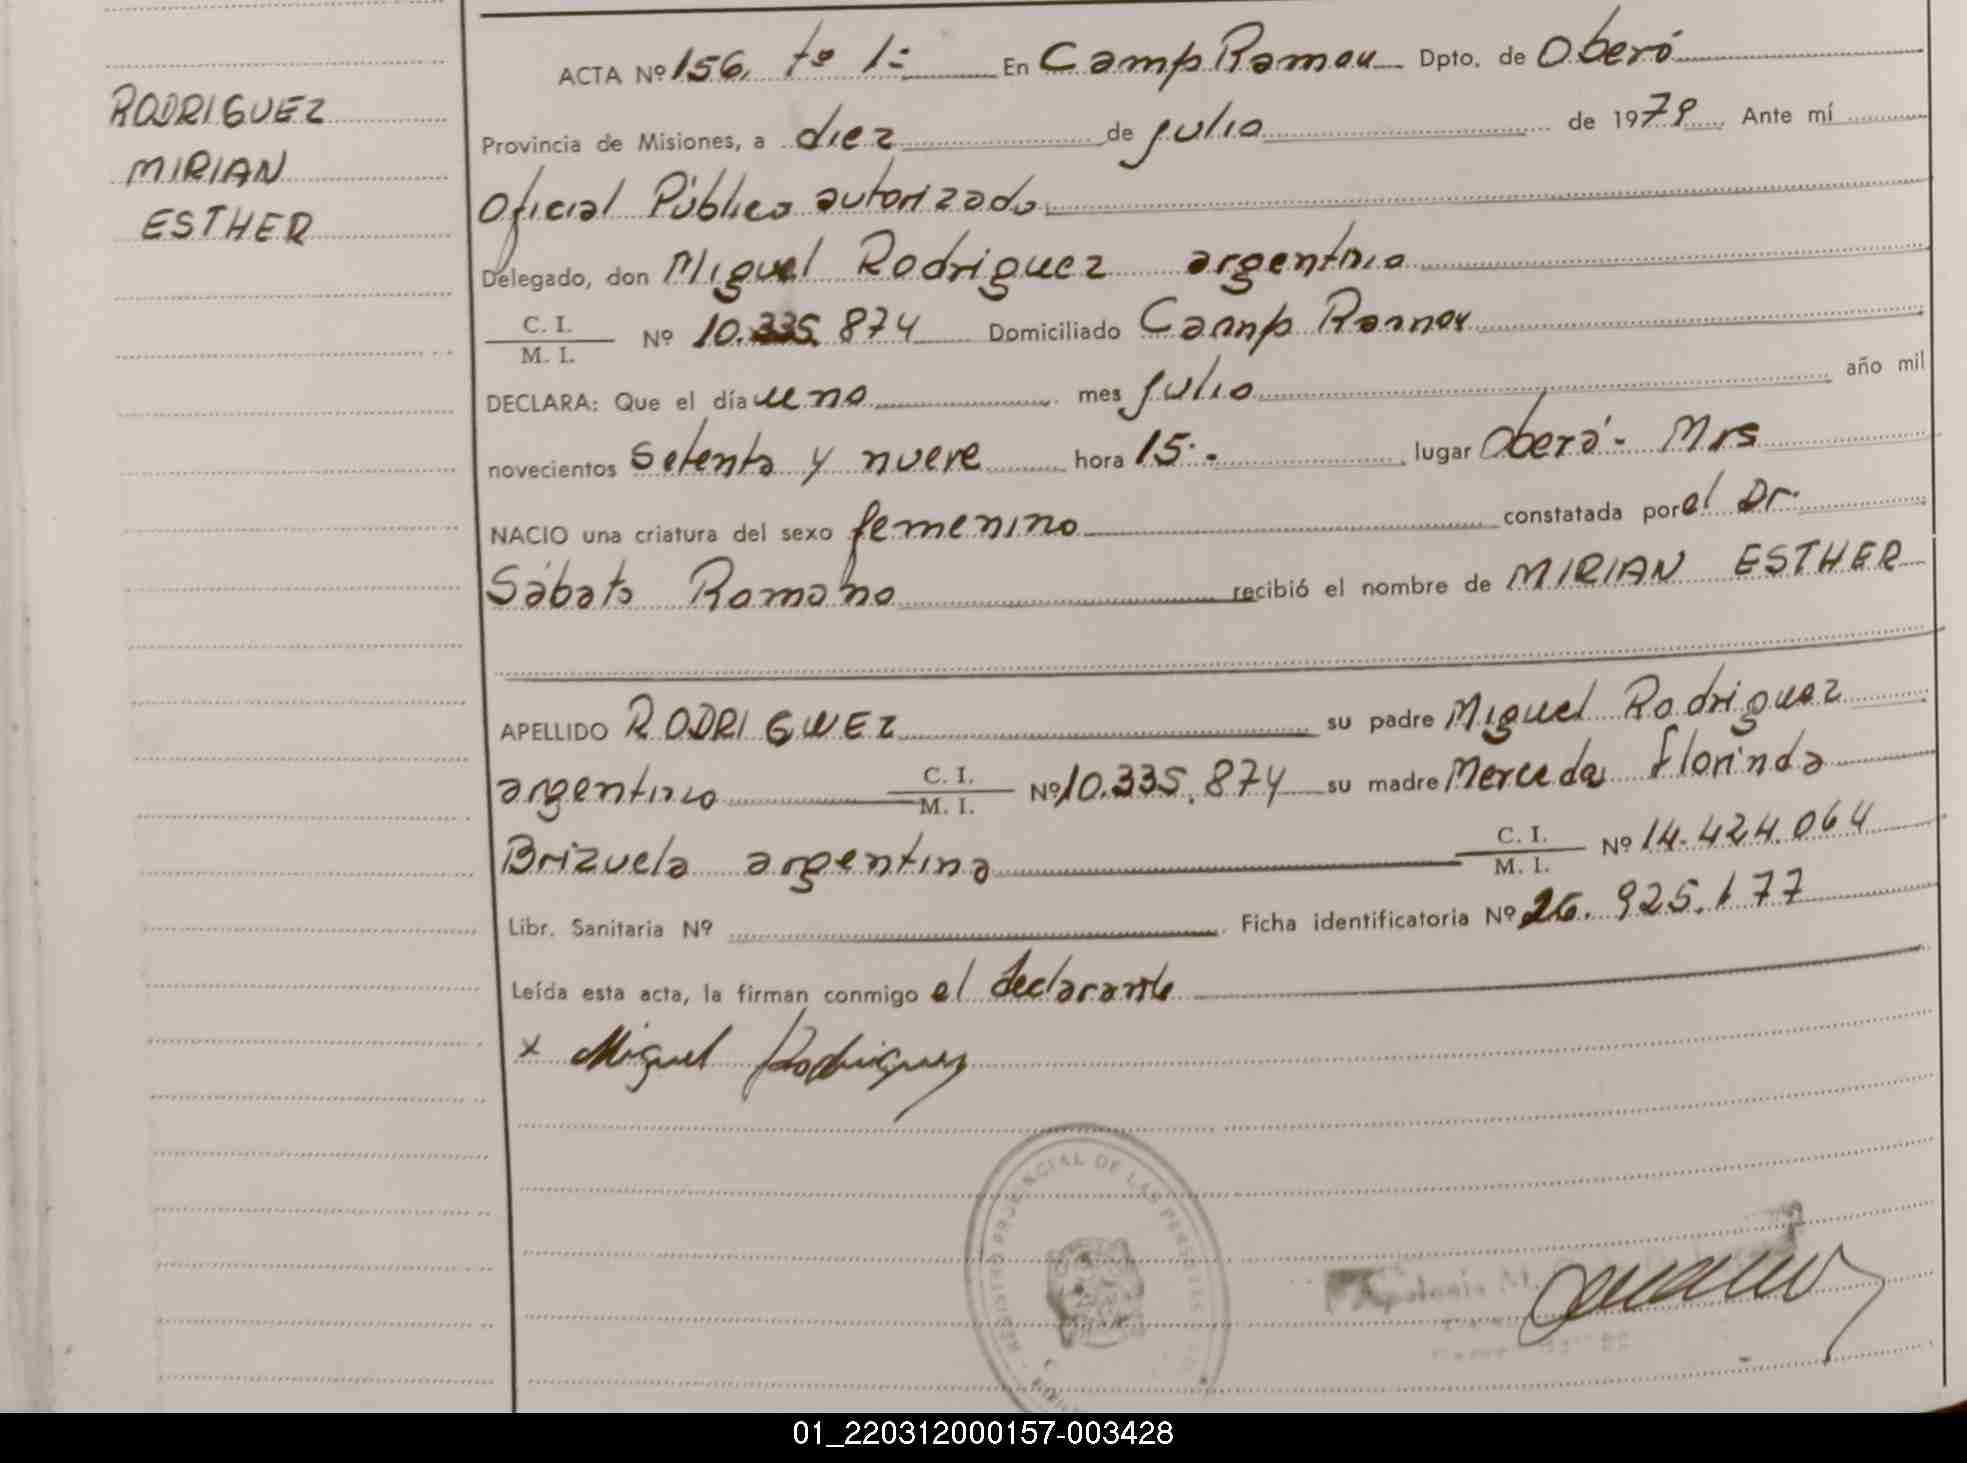 RODRIGUEZ
MIRIAN
ESTHER
ACTA Nº 156. tº 1:- En Camp Ramon Dpto. de Oberá
Provincia de Misiones, a diez de julio de 1979 Ante mí
Oficial Público autorizado
Delegado, don Miguel Rodriguez argentino
C. I.
M. I.
Nº 10.335.874 Domiciliado Camp Ramon
DECLARA: Que el día uno mes julio año mil
novecientos setenta y nueve hora 15.- lugar Oberá.- Mrs
NACIO una criatura del sexo femenino constatada por el Dr.
Sábato Romano recibió el nombre de MIRIAN ESTHER
APELLIDO RODRIGUEZ su padre Miguel Rodriguez
argentino C. I.
M. I.
Nº 10.335.874 su madre Mercedes Florinda
Brizuela argentina C. I.
M. I.
Nº 14.424.064
Libr. Sanitaria Nº Ficha identificatoria Nº 26.925.177
Leída esta acta, la firman conmigo el declarante
x Miguel Rodriguez
REGISTRO PROVINCIAL DE LAS PERSONAS
01_220312000157-003428